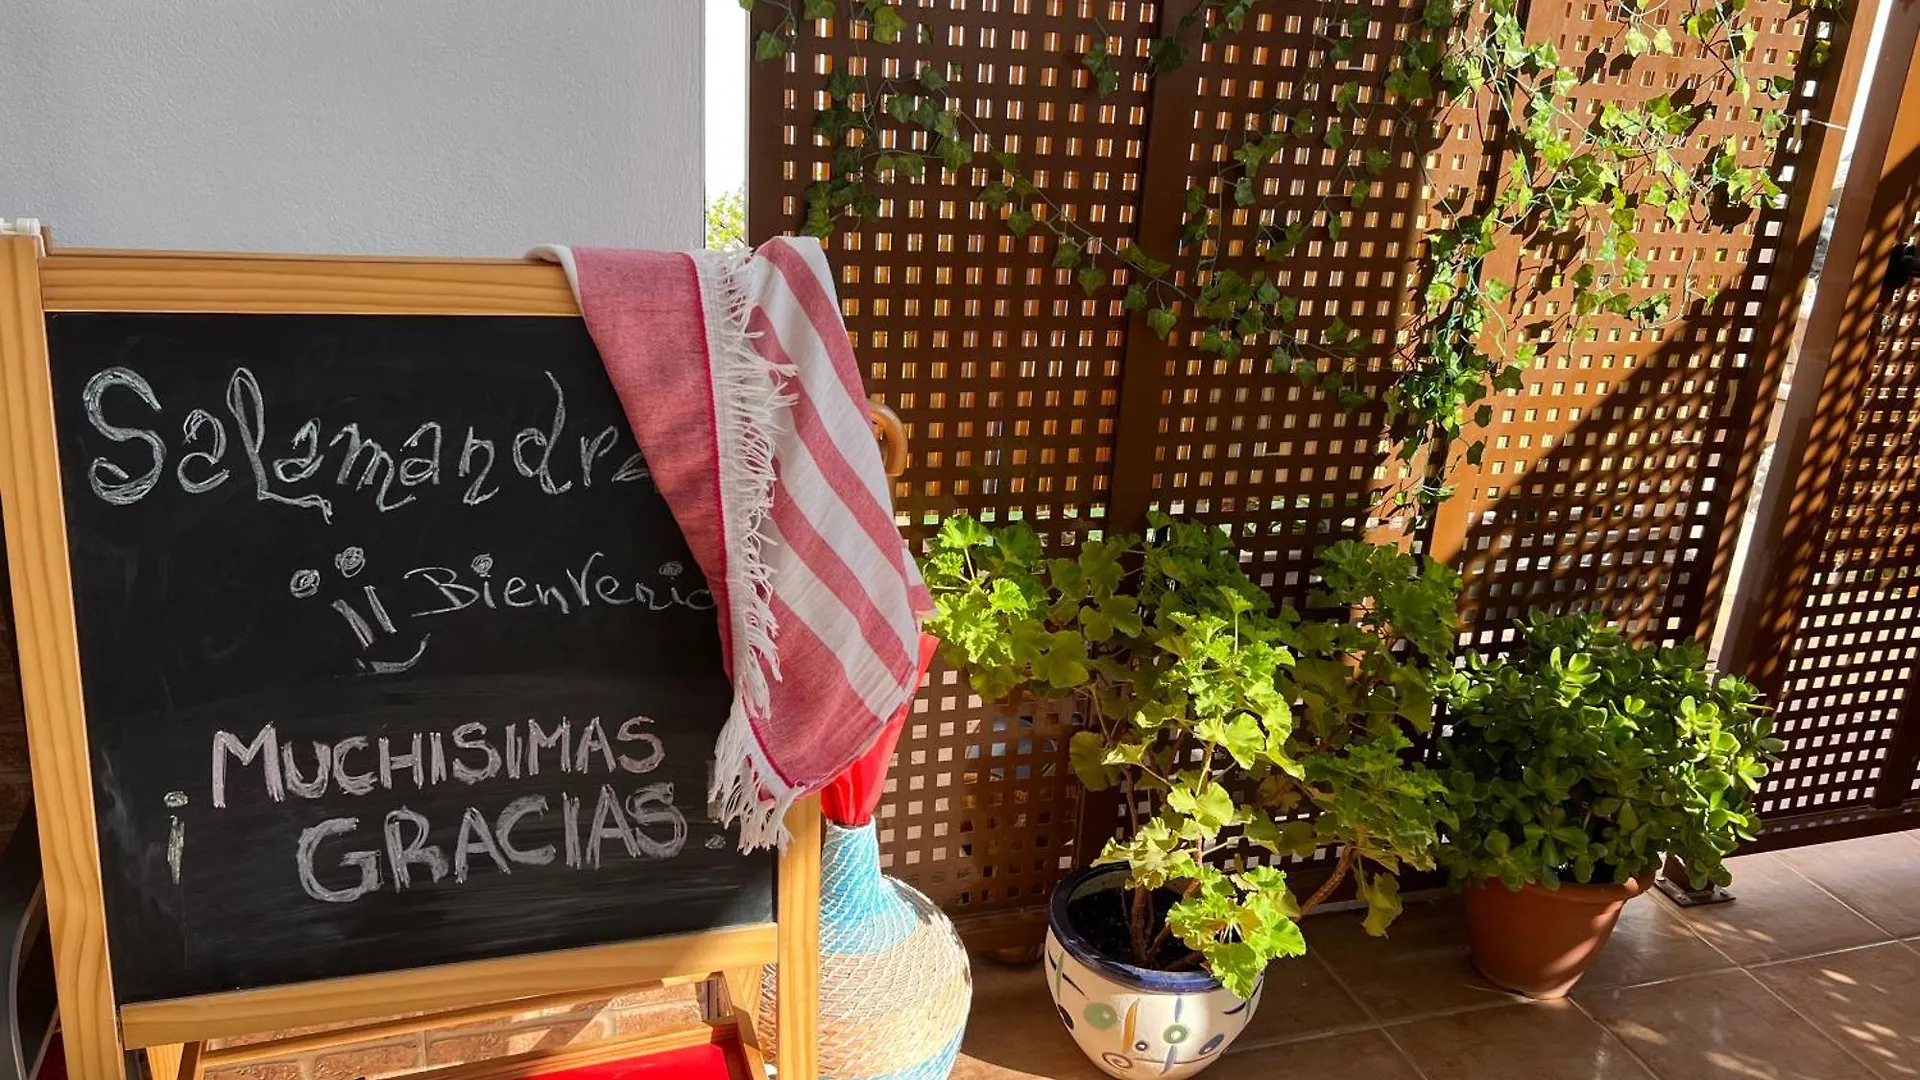 Salamandra
Bienvenid
¡MUCHISIMAS
GRACIAS!